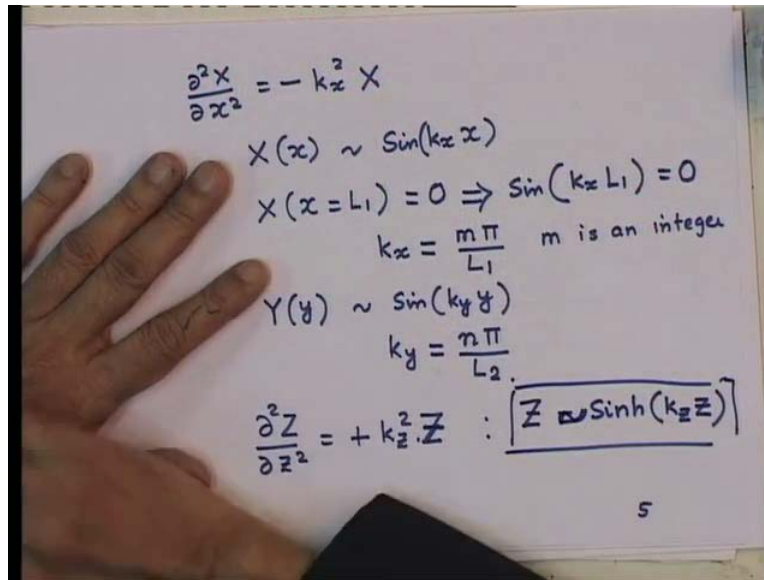 ∂²X/∂x² = − kx² X
X(x) ~ Sin(kx x)
X(x=L₁) = 0 ⇒ Sin(kx L₁) = 0
kx = mπ/L₁ m is an intege
Y(y) ~ Sin(ky y)
ky = nπ/L₂.
∂²Z/∂z² = + kz².Z : Z ~ Sinh(kz Z)
5